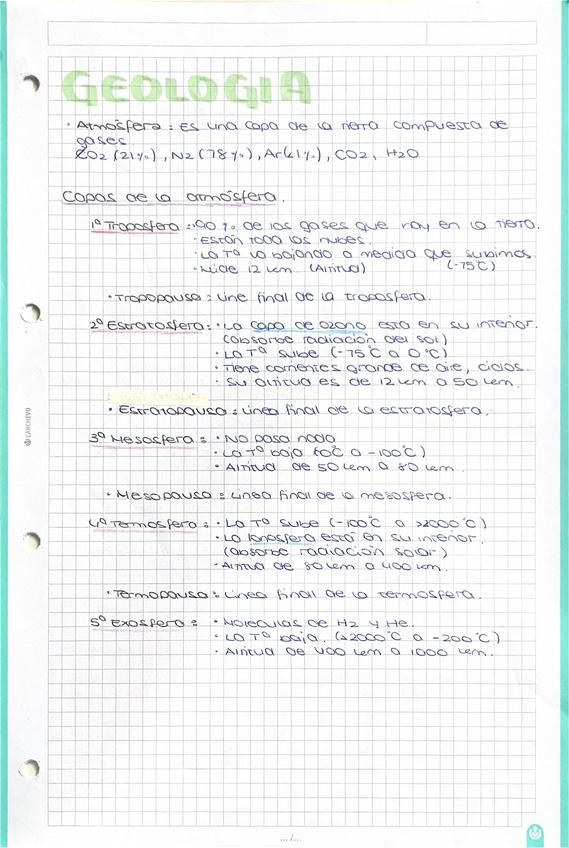 GEOLOGIA
· Atmósfera: Es una capa de la tierra compuesta de
gases.
O2 (21%), N2 (78%), Ar(<1%), CO2, H2O
Capas de la atmósfera.
1º Troposfera: · 90% de los gases que hay en la tierra.
· Están todo las nubes.
· La Tº la bajando a medida que subimos
· Mide 12 km (Altitud) (-75ºC)
· Tropopausa: Line final de la troposfera.
2º Estratosfera: · La capa de ozono esta en su interior.
(absorbe radiación del sol)
· La Tº sube (-75ºC a 0ºC)
· Tiene corrientes grande de aire, ciclos.
· Su altitud es de 12 km a 50 km.
· Estratopausa: Linea final de la estratosfera.
3º Mesosfera: · No pasa nada
· La Tº baja (0ºC a -100ºC)
· Altitud de 50 km a 80 km.
· Mesopausa: Linea final de la mesosfera.
4º Termosfera: · La Tº sube (-100ºC a >2000ºC)
· La Ionosfera está en su interior.
(absorbe radiación solar)
· Altitud de 80 km a 400 km.
· Termopausa: Linea final de la termosfera.
5º Exosfera: · Moleculas de H2 y He.
· La Tº baja. (>2000ºC a -200ºC)
· Altitud de 400 km a 1000 km.
CARCHIVO
.../...